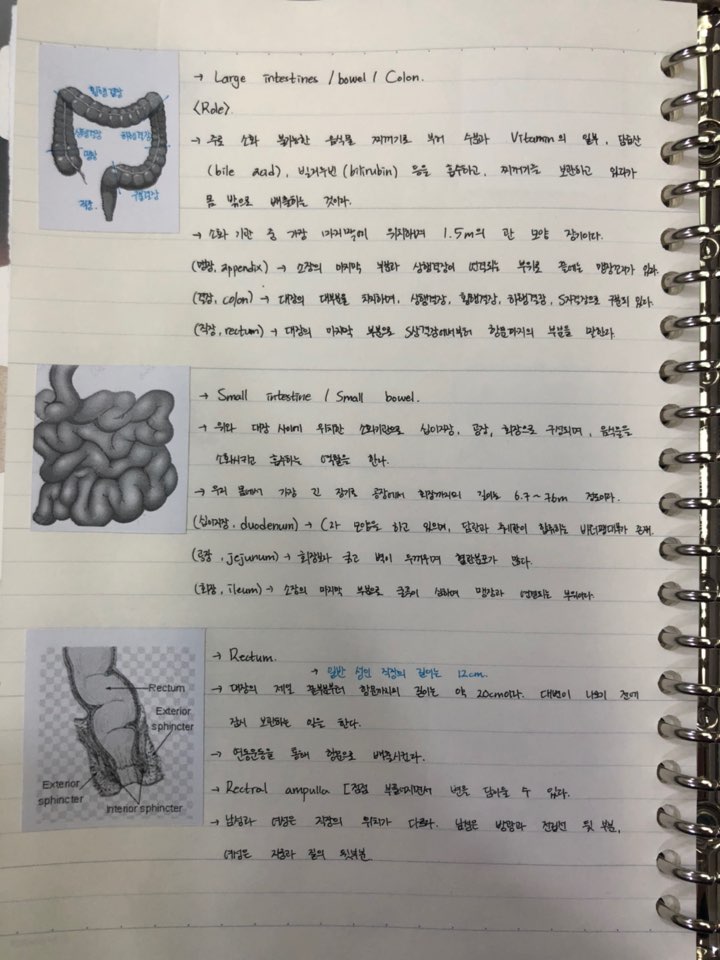 → Large intestines / bowel / Colon.
<Role>.
→ 주로 소화 불가능한 음식물 찌꺼기로 부터 수분과 Vitamin의 일부, 담즙산
(bile acid), 빌리루빈 (bilirubin) 등을 흡수하고, 찌꺼기를 보관하고 있다가
몸 밖으로 배출하는 것이다.
→ 소화 기관 중 가장 마지막에 위치하며 1.5m의 관 모양 장기이다.
(맹장, appendix) → 소장의 마지막 부분과 상행결장이 연결되는 부위로 끝에는 맹장꼬리가 있다.
(결장, colon) → 대장의 대부분을 차지하며, 상행결장, 횡행결장, 하행결장, S자결장으로 구분되 있다.
(직장, rectum) → 대장의 마지막 부분으로 S상결장에서부터 항문까지의 부분을 말한다.
횡행결장
상행결장
하행결장
맹장
직장.
구불결장
→ Small intestine / Small bowel.
→ 위와 대장 사이에 위치한 소화기관으로 십이지장, 공장, 회장으로 구성되며, 음식물을
소화시키고 흡수하는 역할을 한다.
→ 우리 몸에서 가장 긴 장기로 공장에서 회장까지의 길이는 6.7 ~ 7.6m 정도이다.
(십이지장, duodenum) → C자 모양을 하고 있으며, 담관과 췌관이 합류하는 바터팽대부가 존재.
(공장, jejunum) → 회장보다 굵고 벽이 두꺼우며 혈관분포가 많다.
(회장, ileum) → 소장의 마지막 부분으로 굴곡이 심하며 맹장과 연결되는 부위이다.
→ Rectum.
→ 일반 성인 직장의 길이는 12cm.
→ 대장의 제일 끝부분부터 항문까지의 길이는 약 20cm이다. 대변이 나오기 전에
잠시 보관하는 일을 한다.
→ 연동운동을 통해 항문으로 배출시킨다.
→ Rectral ampulla [점점 부풀어지면서 변을 담아둘 수 있다.
→ 남성과 여성은 직장의 위치가 다르다. 남성은 방광과 전립선 뒷 부분,
여성은 자궁과 질의 뒷부분.
Rectum
Exterior
sphincter
Exterior
sphincter
Interior sphincter